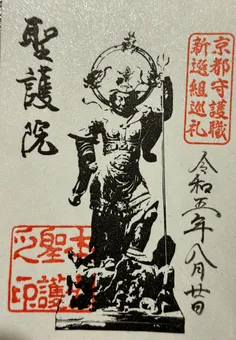 京都守護職
新選組巡礼
令和五年八月廿日
聖護院
聖護
之印